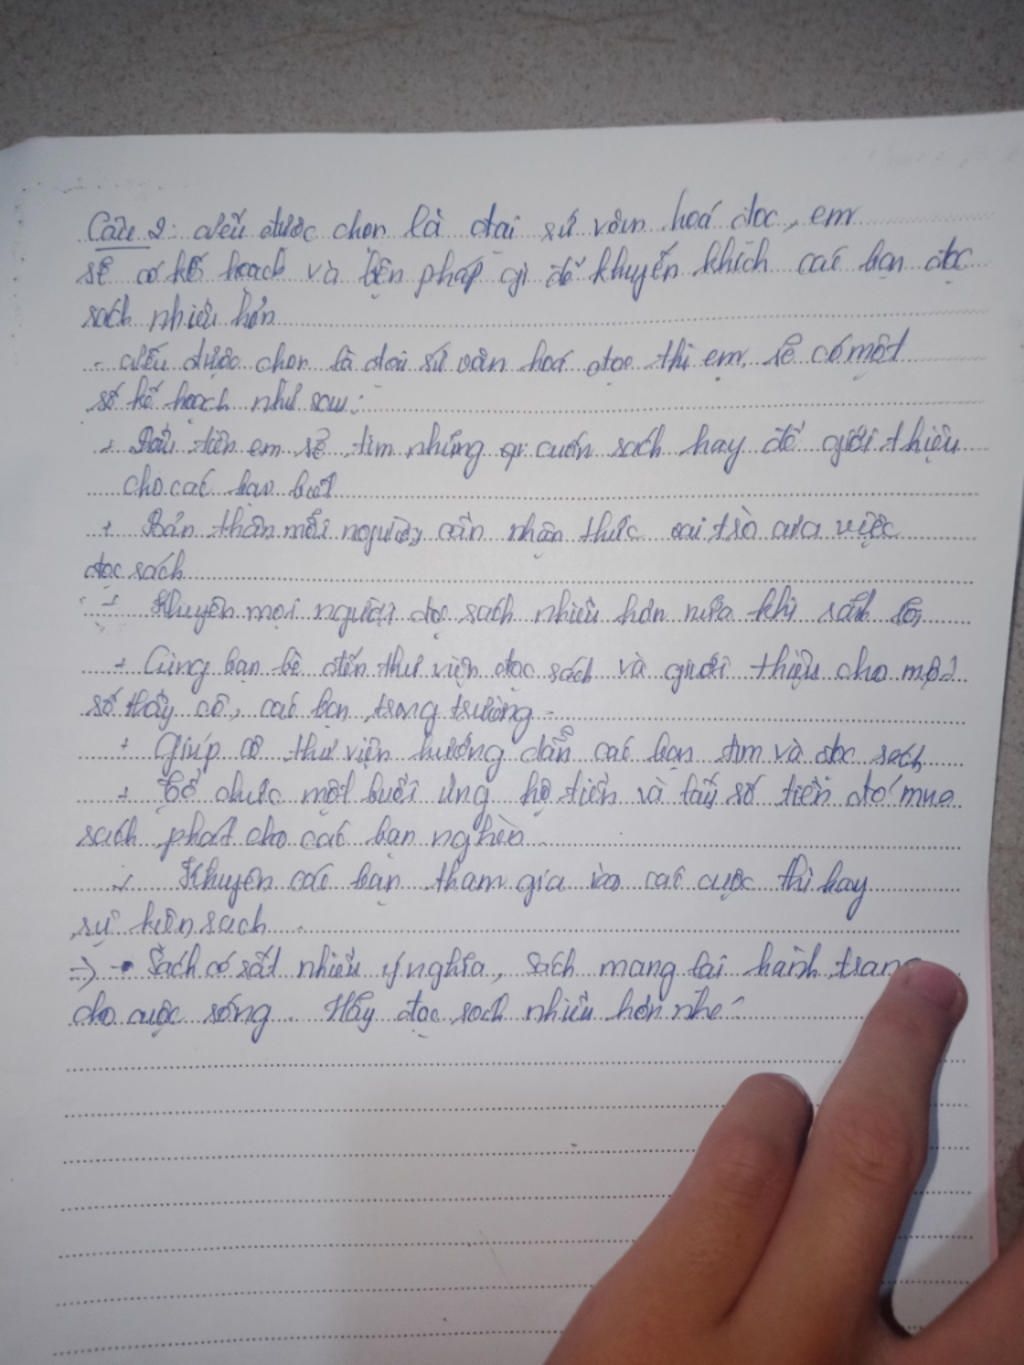 Câu 2: Nếu được chọn là đại sứ văn hoá đọc, em
sẽ có kế hoạch và biện pháp gì để khuyến khích các bạn đọc
sách nhiều hơn
- Nếu được chọn là đại sứ văn hoá đọc thì em sẽ có một
số kế hoạch như sau:
+ Đầu tiên em sẽ tìm những cuốn sách hay để giới thiệu
cho các bạn biết
+ Bản thân mỗi người cần nhận thức vai trò của việc
đọc sách
+ Khuyên mọi người đọc sách nhiều hơn nữa khi
+ Cùng bạn bè đến thư viện đọc sách và giới thiệu cho một
số thầy cô, các bạn trong trường
+ Giúp cô thư viện hướng dẫn các bạn tìm và đọc sách
+ Tổ chức một buổi ủng hộ tiền và lấy số tiền đó mua
sách phát cho các bạn nghèo
Khuyên các bạn tham gia vào các cuộc thi hay
sự kiện sách
=> Sách có rất nhiều ý nghĩa, sách mang lại hành trang
cho cuộc sống. Hãy đọc sách nhiều hơn nhé